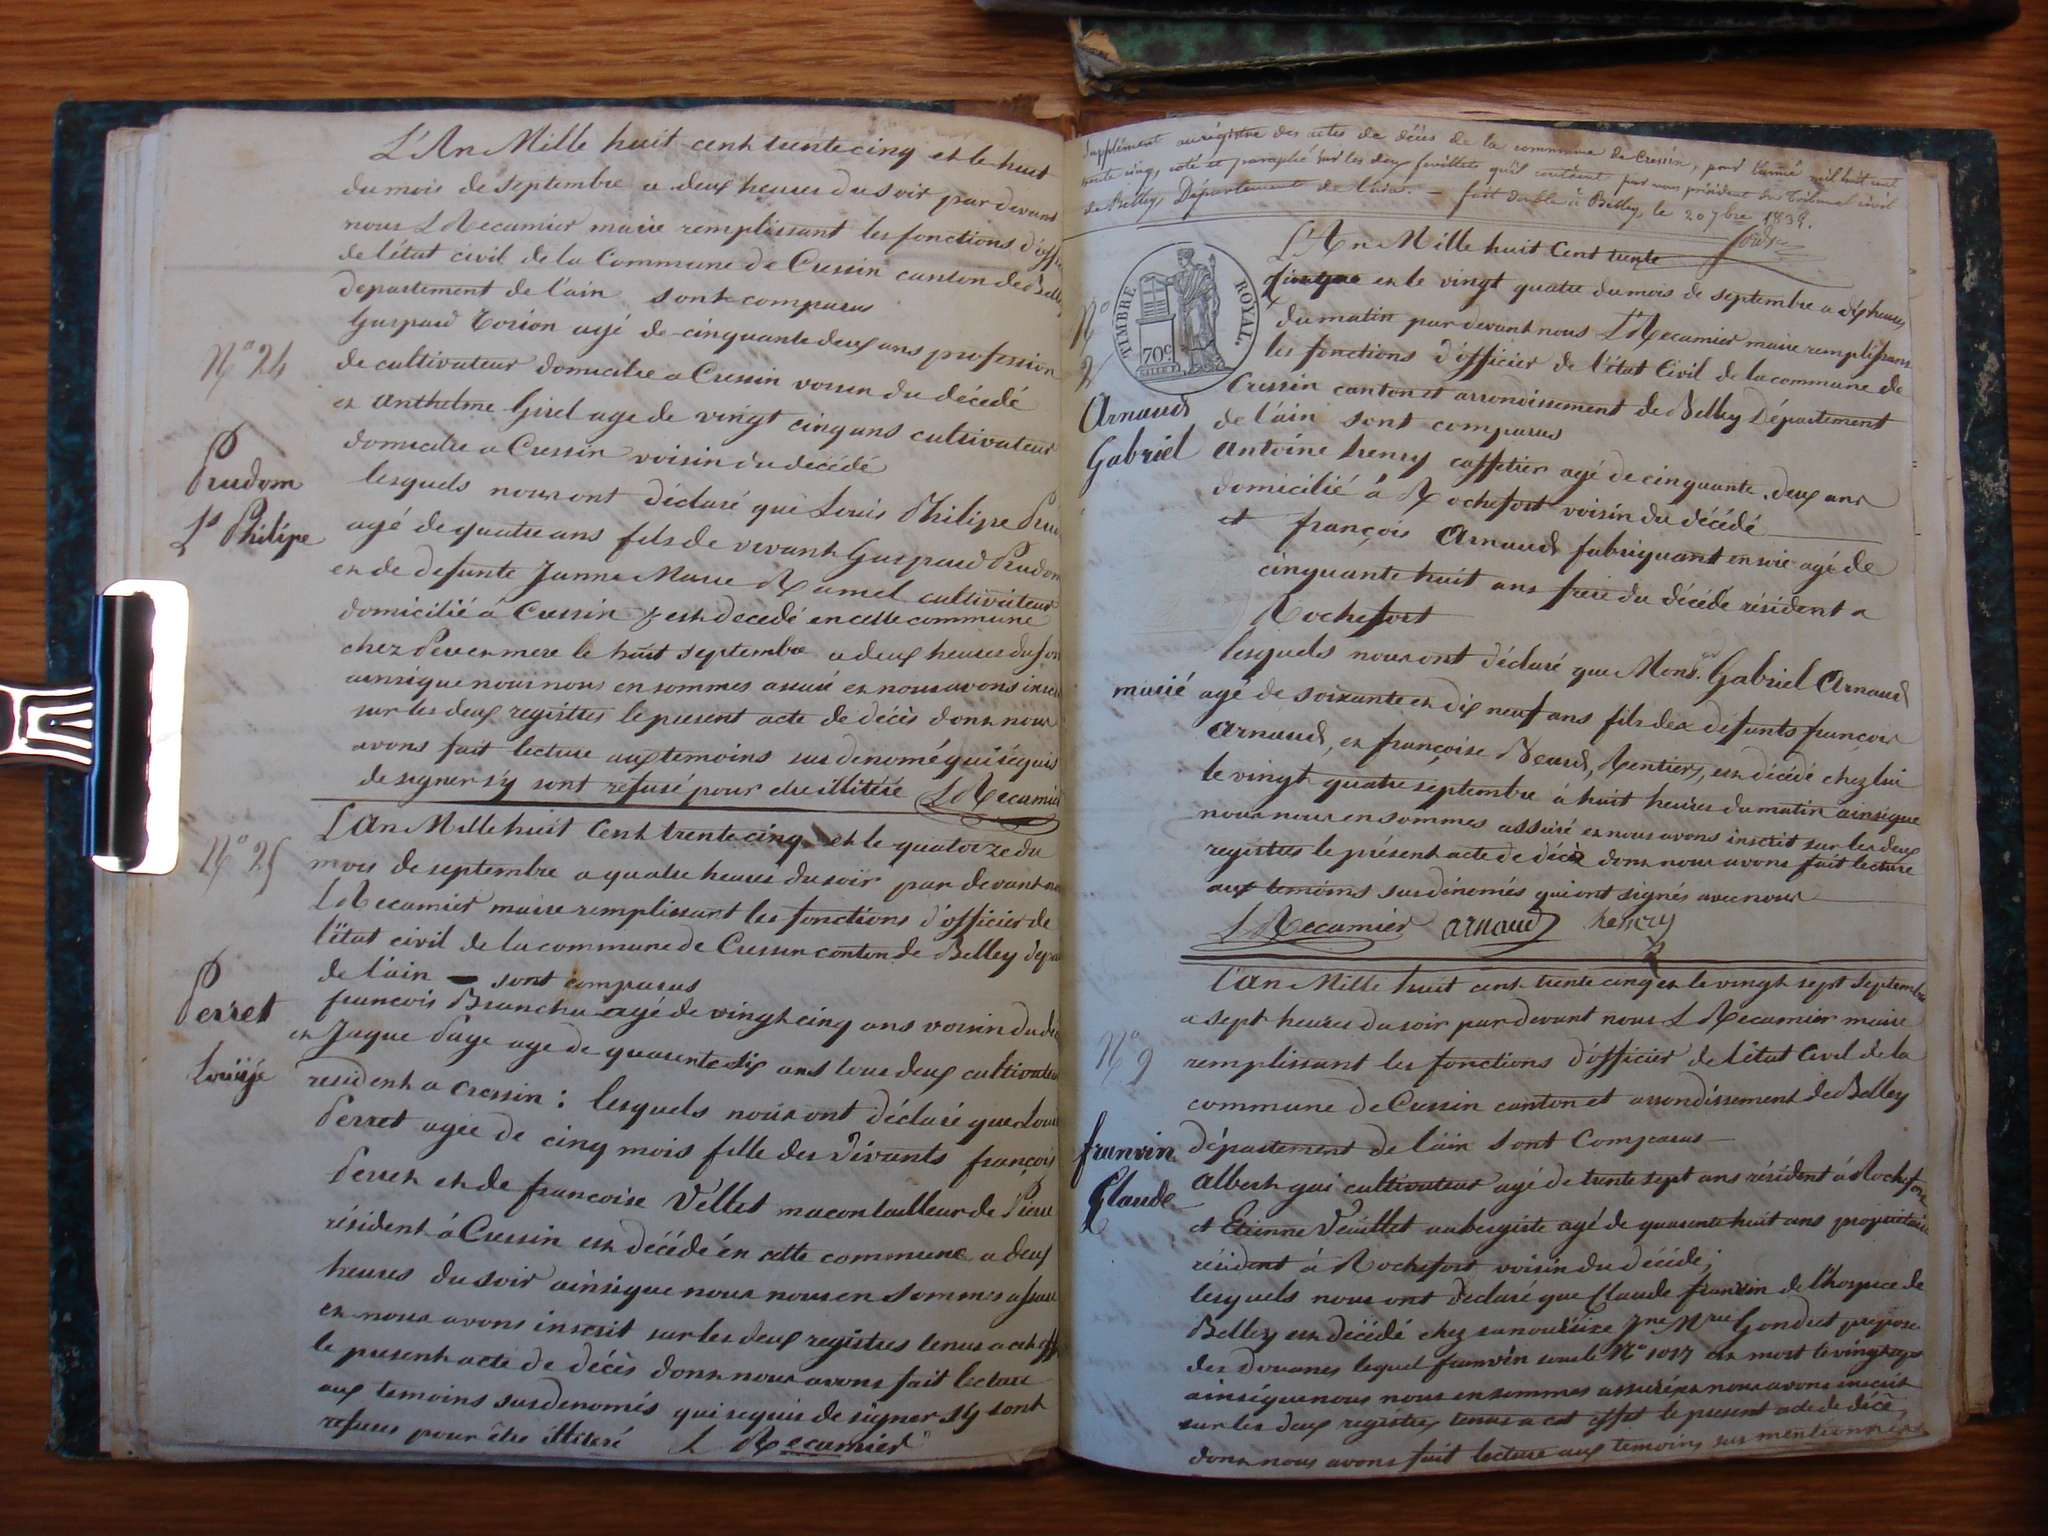 L'An Mille huit cent trente cinq et le huit
du mois de septembre a deux heures du soir par devant
nous L Recamier maire remplissant les fonctions d'offi
de l'état civil de la Commune de Cressin canton de Belley
departement de l'ain sont comparus
Gaspard Torion agé de cinquante deux ans profession
N° 24
de cultivateur domicilie a Cressin voisin du décédé
et Anthelme Girel age de vingt cinq ans cultivateur
domicilie a Cressin voisin du décédé
Prudom
Ls Philipe
lesquels nous ont déclaré que Louis Philipe Pru
agé de quatre ans fils de vivant Gaspard Prudom
et de defunte Janne Marie Ramel cultivateur
domicilié á Cressin est decedé en cette commune
chez Pere et mere le huit septembre a deux heures du soir
ainsi que nous nous en sommes assuré et nous avons inscri
sur les deux registres le present acte de décès dont nous
avons fait lecture aux temoins sus denomé qui réquis
de signer s'y sont refusé pour etre illitéré L Recamier
N° 25
L'An Mille huit Cent trente cinq et le quatorze du
mois de septembre a quatre heures du soir par devant nous
L Recamier maire remplissant les fonctions d'officier de
l'état civil de la commune de Cressin canton de Belley dépar
de l'ain sont comparus
Perret
Louïse
francois Branchu agé de vingt cinq ans voisin du dé
et Jaque Page age de quarente six ans tous deux cultivateur
resident a Cressin : lesquels nous ont déclaré que Loui
Perret agée de cinq mois fille des vivants françois
Perret et de francoise Vellet macon tailleur de Pierre
résident á Cressin est décédé en cette commune a deux
heures du soir ainsi que nous nous en sommes assuré
et nous avons inscrit sur les deux registres tenus a cet eff
le present acte de décès dont nous avons fait lecture
aux temoins sus denomés qui requis de signer s'y sont
refuses pour être illiteré L Recamier
Supplément au régistre des actes de décès de la commune de Cressin, pour l'année mil huit cent
trente cinq, coté et paraphé sur les deux feuillets qu'il contient par nous président du Tribunal civil
de Belley, Département de l'ain. — fait double à Belley, le 20 7bre 1835.
TIMBRE ROYAL
70c
L'An Mille huit Cent trente
cinque et le vingt quatre du mois de septembre a dix heures
N°
du matin par devant nous L Recamier maire remplissant
les fonctions d'officier de l'état Civil de la commune de
Cressin canton et arrondissement de Belley Département
de l'ain sont comparus
Arnaud
Gabriel
Antoine henry caffetier agé de cinquante deux ans
domicilié á Rochefort voisin du décédé
et françois Arnaud fabriquant en soie agé de
cinquante huit ans frere du décédé résident a
Rochefort
lesquels nous ont déclaré que Mons. Gabriel Arnaud
marié agé de soixante et dix neuf ans fils des défunts françois
Arnaud, et françoise Rentier, est décédé chez lui
le vingt quatre septembre á huit heures du matin ainsi que
nous nous en sommes assuré et nous avons inscrit sur les deux
registres le présent acte de décès dont nous avons fait lecture
aux temoins sus dénomés qui ont signés avec nous
L Recamier Arnaud henry
L'an Mille huit cent trente cinq et le vingt sept septembre
a sept heures du soir par devant nous L Recamier maire
N° 9
remplissant les fonctions d'officier de l'état Civil de la
commune de Cressin canton et arrondissement de Belley
département de l'ain sont Comparus
franvin
Claude
Albert gui cultivateur agé de trente sept ans résident á Rochefort
et Etienne Veuillet aubergiste agé de quarente huit ans propriétaire
résident á Rochefort voisin du décédé;
lesquels nous ont déclaré que Claude franvin de l'hospice de
Belley est décédé chez sa nourrise Gondret prépose
des douanes lequel franvin sous le N° 1017 est mort le vingt sept
ainsi que nous nous en sommes assuré et nous avons inscrit
sur les deux registres tenus a cet effet le present acte de décè,
dont nous avons fait lecture aux temoins sus mentionnés